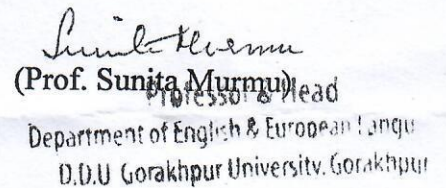 Sunita Murmu
(Prof. Sunita Murmu)
Professor & Head
Department of English & European Langu
D.D.U Gorakhpur University, Gorakhpur